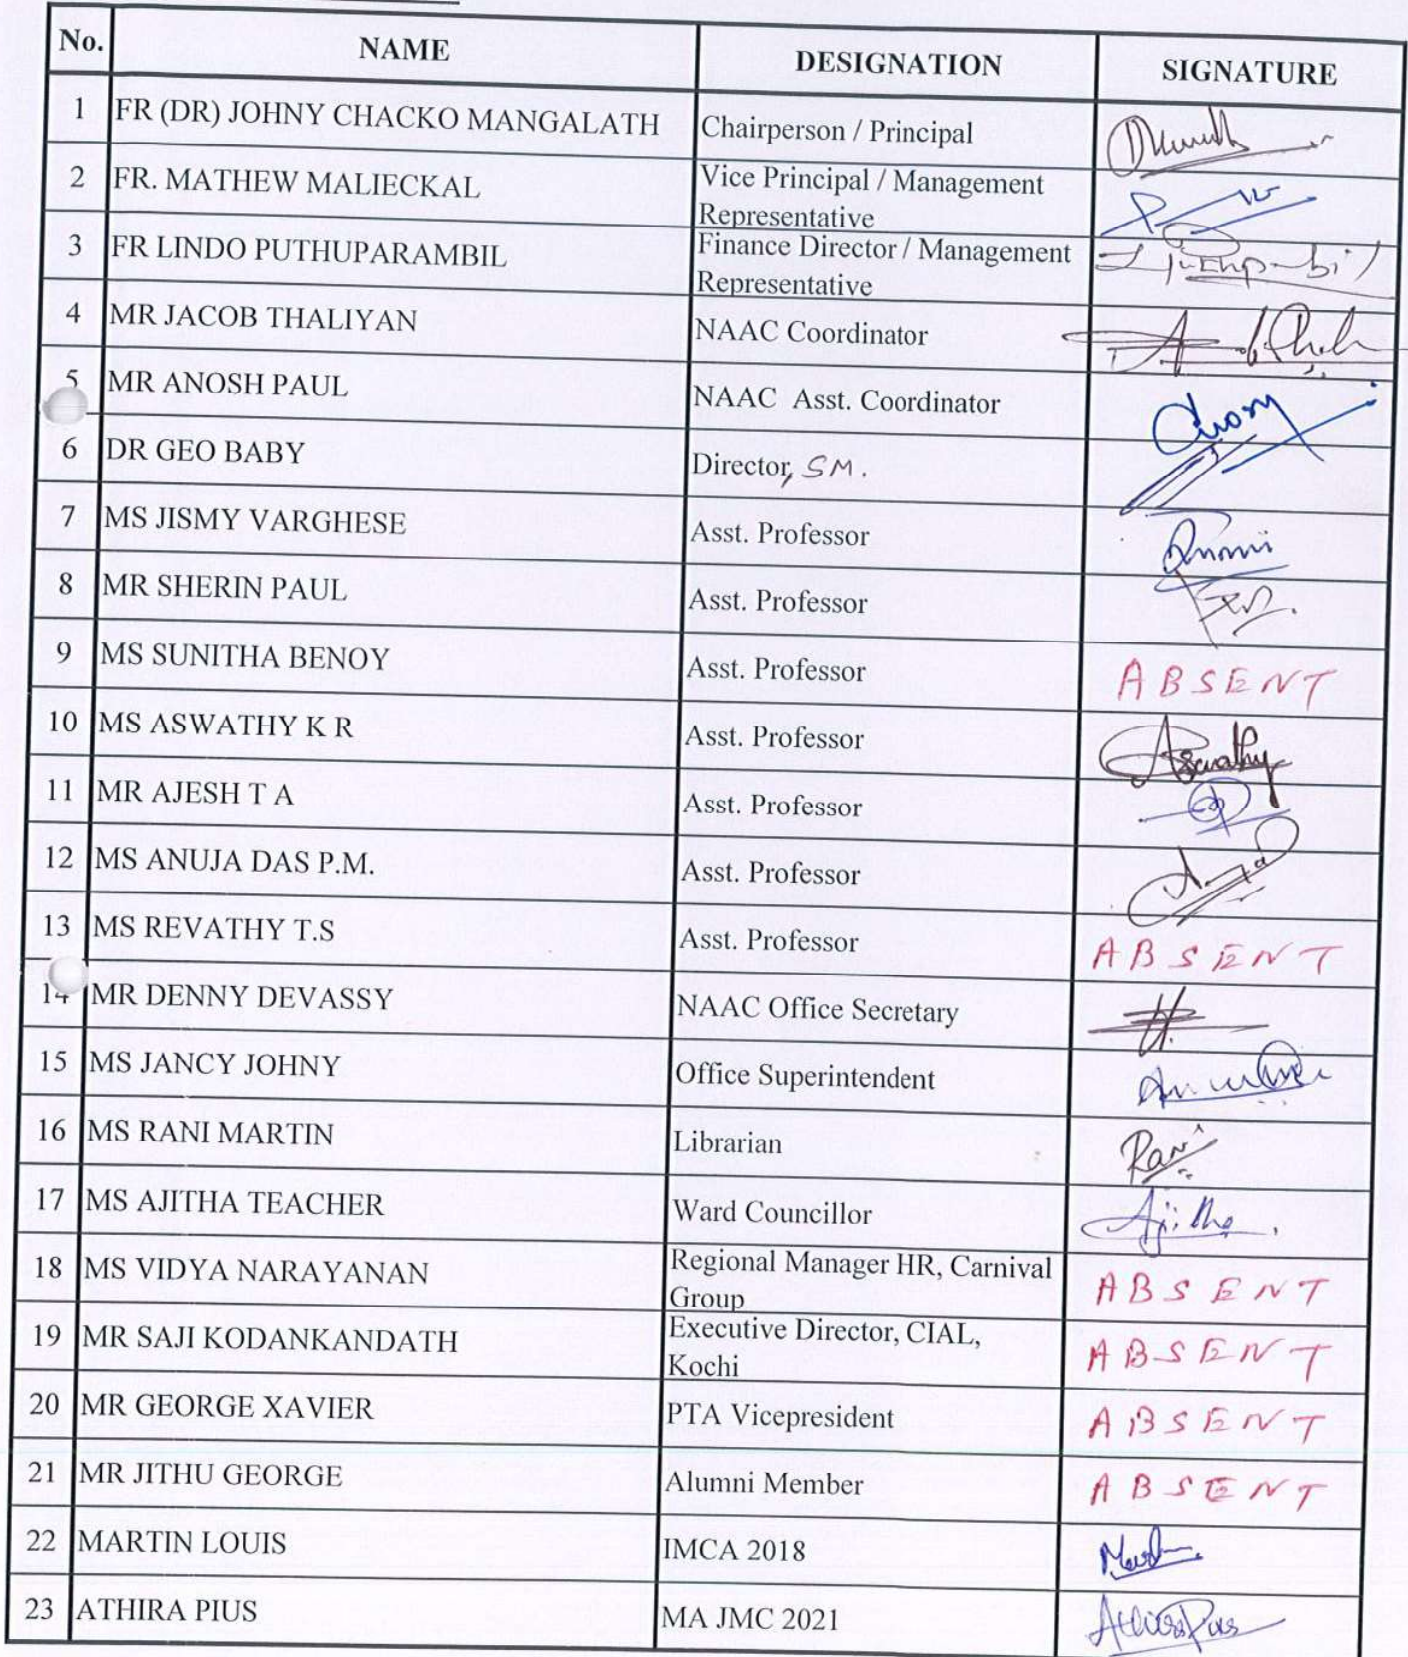 No. NAME DESIGNATION SIGNATURE
1 FR (DR) JOHNY CHACKO MANGALATH Chairperson / Principal
2 FR. MATHEW MALIECKAL Vice Principal / Management
Representative
3 FR LINDO PUTHUPARAMBIL Finance Director / Management
Representative
4 MR JACOB THALIYAN NAAC Coordinator
5 MR ANOSH PAUL NAAC Asst. Coordinator
6 DR GEO BABY Director, SM.
7 MS JISMY VARGHESE Asst. Professor
8 MR SHERIN PAUL Asst. Professor
9 MS SUNITHA BENOY Asst. Professor ABSENT
10 MS ASWATHY K R Asst. Professor Aswathy
11 MR AJESH T A Asst. Professor
12 MS ANUJA DAS P.M. Asst. Professor
13 MS REVATHY T.S Asst. Professor ABSENT
14 MR DENNY DEVASSY NAAC Office Secretary
15 MS JANCY JOHNY Office Superintendent
16 MS RANI MARTIN Librarian Rani
17 MS AJITHA TEACHER Ward Councillor Ajitha
18 MS VIDYA NARAYANAN Regional Manager HR, Carnival
Group ABSENT
19 MR SAJI KODANKANDATH Executive Director, CIAL,
Kochi ABSENT
20 MR GEORGE XAVIER PTA Vicepresident ABSENT
21 MR JITHU GEORGE Alumni Member ABSENT
22 MARTIN LOUIS IMCA 2018
23 ATHIRA PIUS MA JMC 2021 Athira Pius